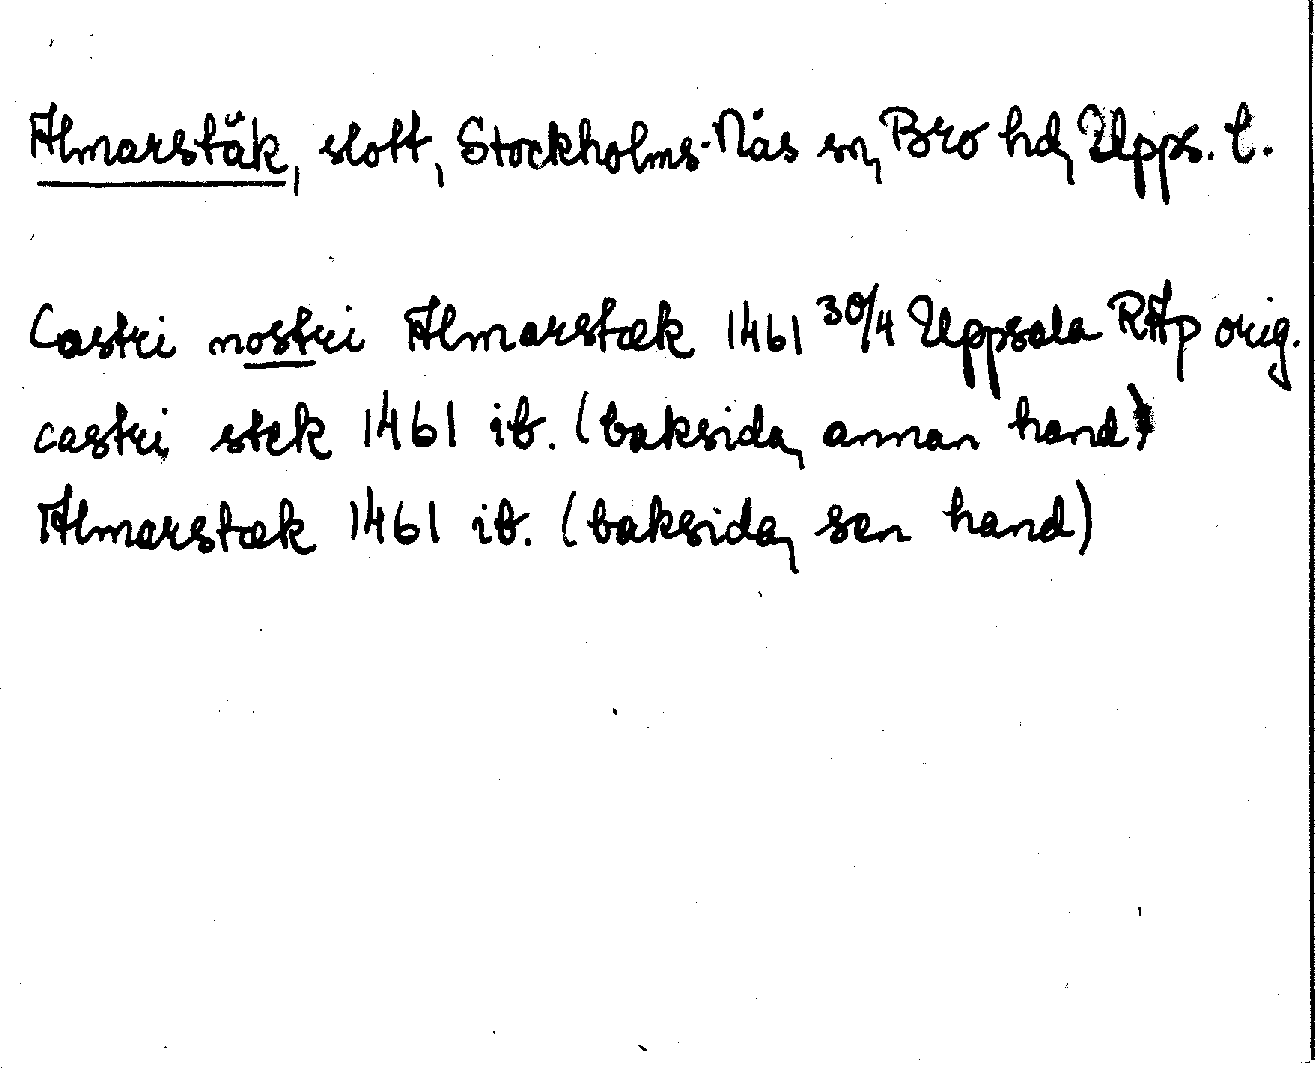 Almarstäk, slott, Stockholms-Näs sn, Bro hd, Upps. l.
Castri nostri Almarstæk 1461 30/4 Uppsala RAp orig.
castri stek 1461 ib. (baksida, annan hand)
Almarstæk 1461 ib. (baksida, sen hand)